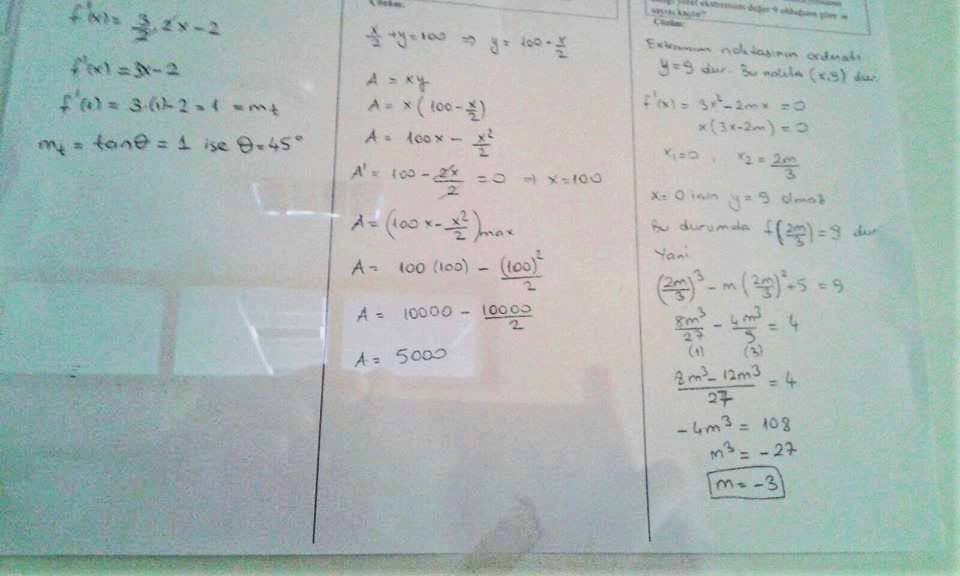 f'(x) = 3/2 . 2x - 2
f'(x) = 3x - 2
f'(1) = 3.(1) - 2 = 1 = m_t
m_t = tanθ = 1 ise θ = 45°
Çözüm:
x/2 + y = 100 ⇒ y = 100 - x/2
A = xy
A = x(100 - x/2)
A = 100x - x²/2
A' = 100 - 2x/2 = 0 ⇒ x = 100
A = (100x - x²/2)max
A = 100(100) - (100)²/2
A = 10000 - 10000/2
A = 5000
yerel ekstremum değer 9 olduğuna göre m
sayısı kaçtır?
Çözüm:
Extremum noktasının ordinatı
y = 9 dur. Bu nokta (x,9) dur.
f'(x) = 3x² - 2mx = 0
x(3x - 2m) = 0
x₁ = 0, x₂ = 2m/3
x = 0 için y = 9 olmaz
Bu durumda f(2m/3) = 9 dur
Yani
(2m/3)³ - m(2m/3)² + 5 = 9
8m³/27 - 4m³/9 = 4
(1) (3)
8m³ - 12m³/27 = 4
-4m³ = 108
m³ = -27
m = -3